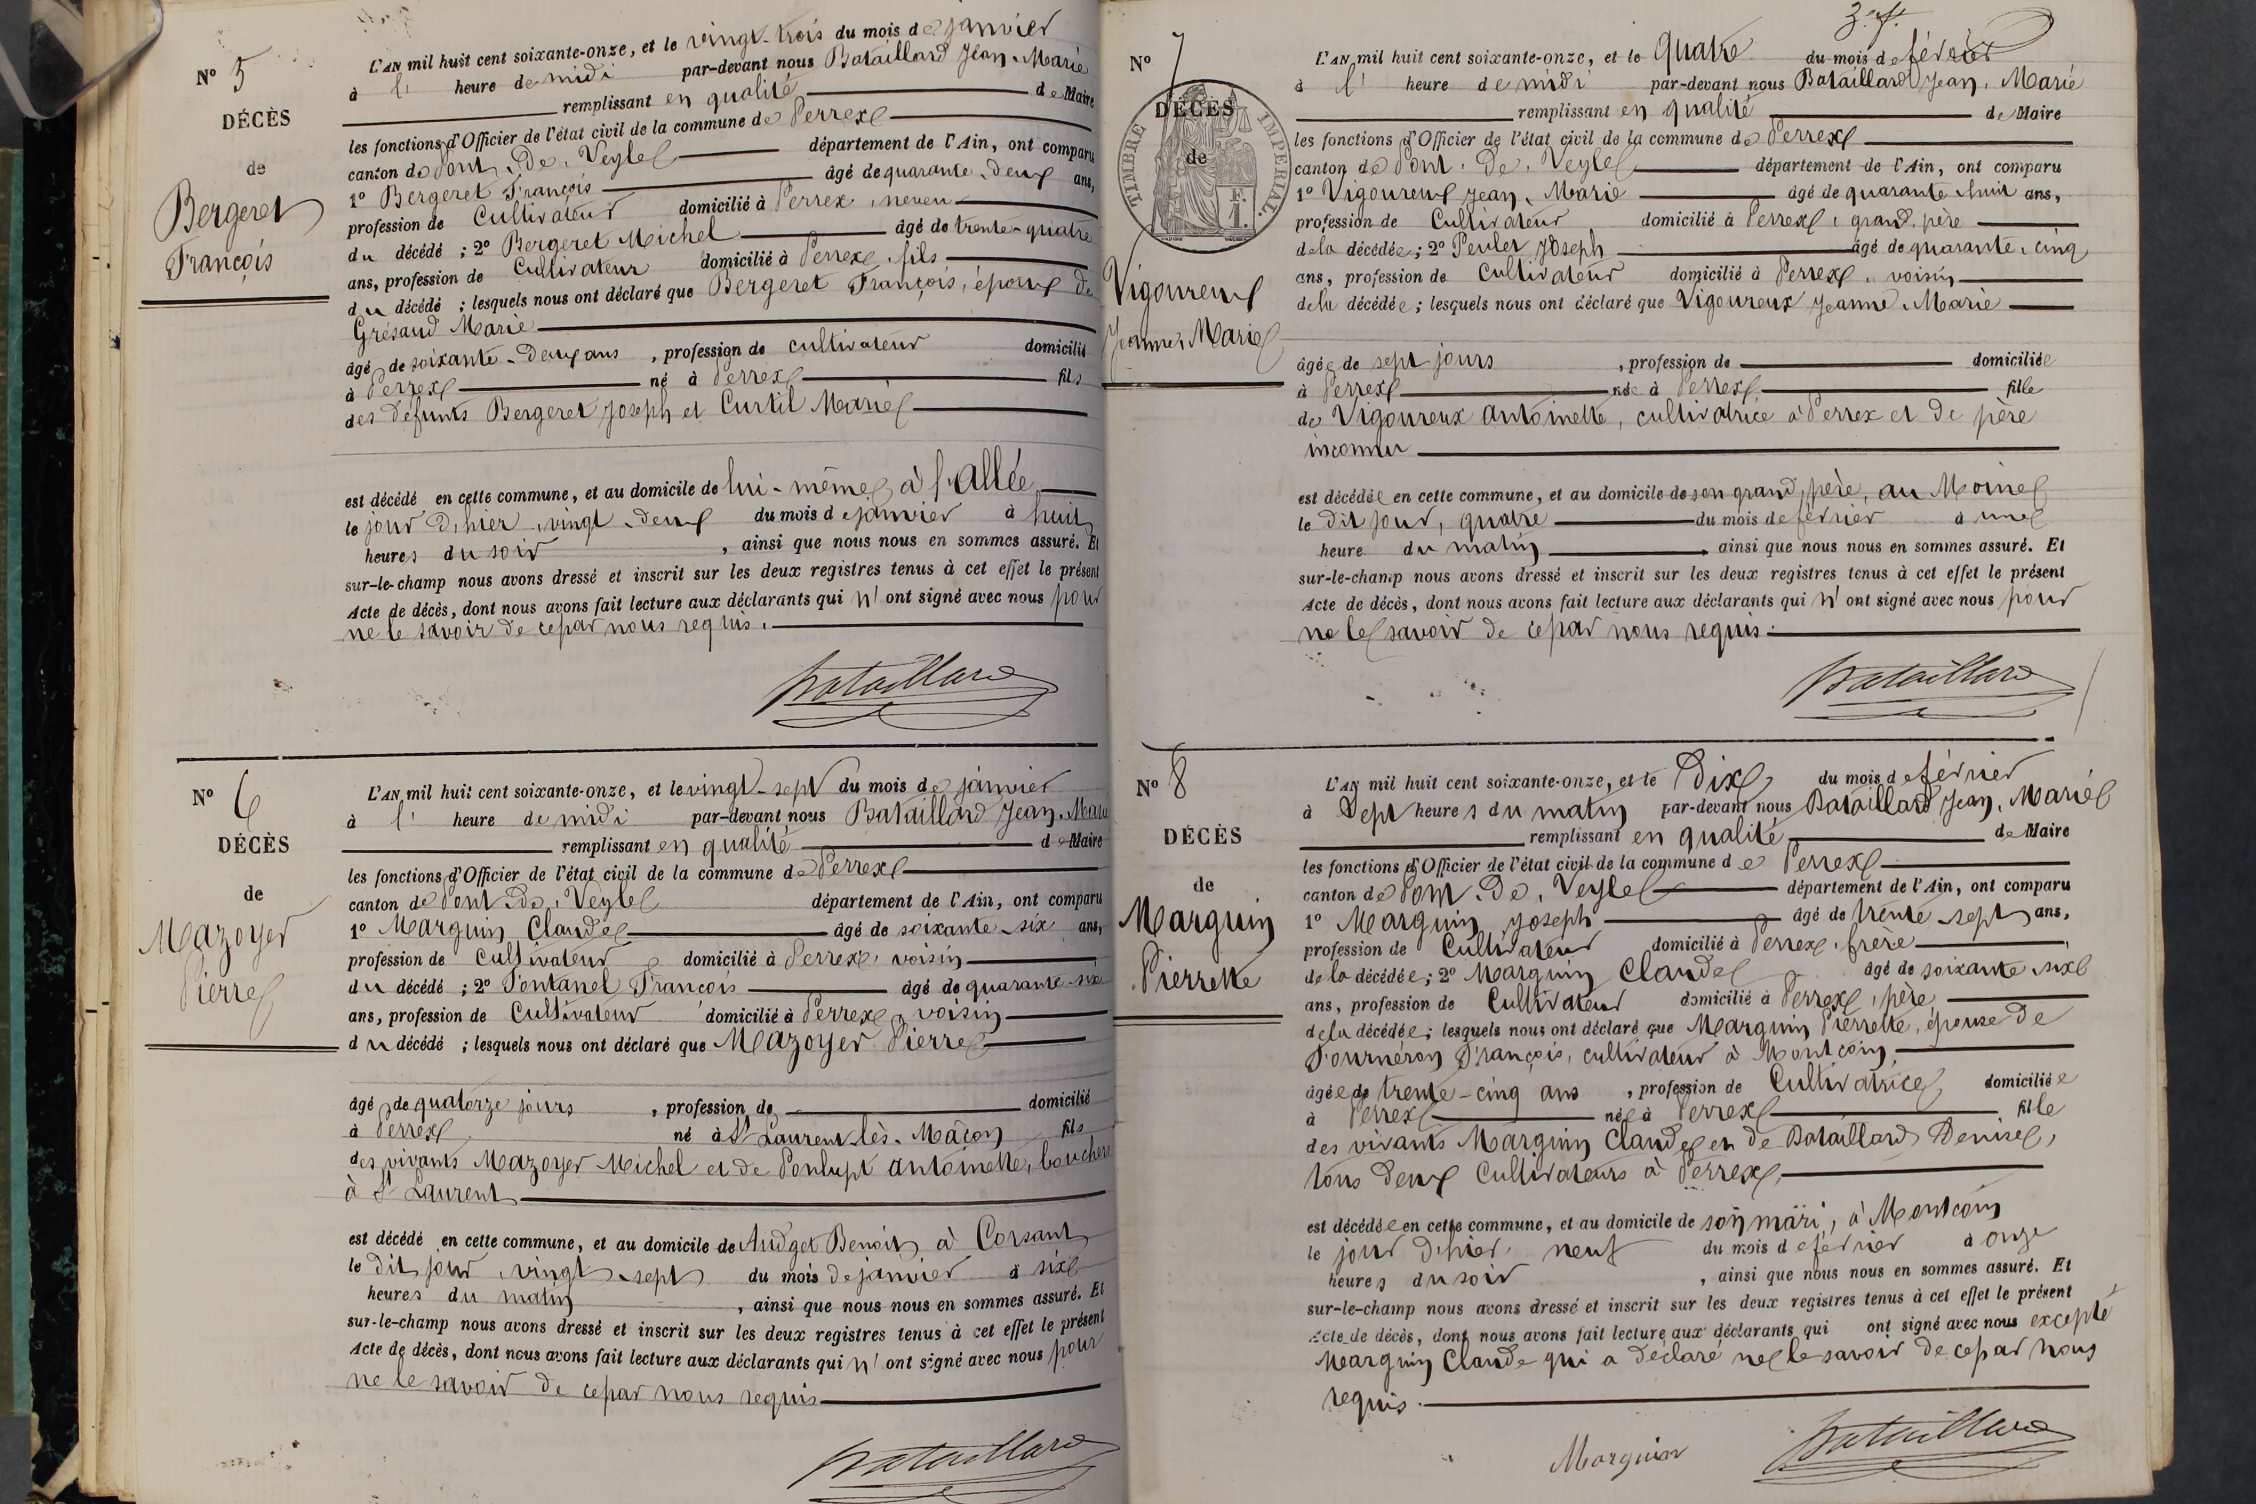 Nº 5
DÉCÈS
de
Bergeret
François
L'AN mil huit cent soixante-onze, et le vingt-trois du mois de janvier
à l' heure de midi par-devant nous Bataillard Jean-Marie
remplissant en qualité de Maire
les fonctions d'Officier de l'état civil de la commune de Perrex
canton de Pont-De-Veyle département de l'Ain, ont comparu
1º Bergeret François âgé de quarante-deux ans,
profession de Cultivateur domicilié à Perrex, neveu
du décédé ; 2º Bergeret Michel âgé de trente-quatre
ans, profession de Cultivateur domicilié à Perrex, fils
du décédé ; lesquels nous ont déclaré que Bergeret François, époux de
Grésaud Marie
âgé de soixante-deux ans, profession de cultivateur domicilié
à Perrex né à Perrex fils
des défunts Bergeret Joseph et Curtil Marie
est décédé en cette commune, et au domicile de lui-même, à l'allée
le jour d'hier, vingt-deux du mois de janvier à huit
heures du soir, ainsi que nous nous en sommes assuré. Et
sur-le-champ nous avons dressé et inscrit sur les deux registres tenus à cet effet le présent
Acte de décès, dont nous avons fait lecture aux déclarants qui n'ont signé avec nous pour
ne le savoir de ce par nous requis.
Bataillard
Nº 6
DÉCÈS
de
Mazoyer
Pierre
L'AN mil huit cent soixante-onze, et le vingt-sept du mois de janvier
à l' heure de midi par-devant nous Bataillard Jean-Marie
remplissant en qualité de Maire
les fonctions d'Officier de l'état civil de la commune de Perrex
canton de Pont-De-Veyle département de l'Ain, ont comparu
1º Marguin Claude âgé de soixante-six ans,
profession de Cultivateur domicilié à Perrex, voisin
du décédé ; 2º Fontanel François âgé de quarante-six
ans, profession de Cultivateur domicilié à Perrex, voisin
du décédé ; lesquels nous ont déclaré que Mazoyer Pierre
âgé de quatorze jours, profession de domicilié
à Perrex né à St Laurent-lès-Mâcon fils
des vivants Mazoyer Michel et de Ponlupt antoinette, bouchers
à St Laurent
est décédé en cette commune, et au domicile de Audget Benoit, à Corsant
le dit jour, vingt-sept du mois de janvier à six
heures du matin, ainsi que nous nous en sommes assuré. Et
sur-le-champ nous avons dressé et inscrit sur les deux registres tenus à cet effet le présent
Acte de décès, dont nous avons fait lecture aux déclarants qui n'ont signé avec nous pour
ne le savoir de ce par nous requis
Bataillard
3. f.
Nº 7
DÉCÈS
de
TIMBRE IMPERIAL.
F. 1.
Vigoureux
Jeanne-Marie
L'AN mil huit cent soixante-onze, et le quatre du mois de février
à l' heure de midi par-devant nous Bataillard Jean-Marie
remplissant en qualité de Maire
les fonctions d'Officier de l'état civil de la commune de Perrex
canton de Pont-De-Veyle département de l'Ain, ont comparu
1º Vigoureux Jean-Marie âgé de quarante-huit ans,
profession de Cultivateur domicilié à Perrex, grand-père
de la décédée ; 2º Peulet Joseph âgé de quarante-cinq
ans, profession de Cultivateur domicilié à Perrex, voisin
de la décédée ; lesquels nous ont déclaré que Vigoureux Jeanne-Marie
âgée de sept jours, profession de domiciliée
à Perrex née à Perrex fille
de Vigoureux antoinette, cultivatrice à Perrex et de père
inconnu
est décédée en cette commune, et au domicile de son grand-père, au Moine
le dit jour, quatre du mois de février à une
heure du matin, ainsi que nous nous en sommes assuré. Et
sur-le-champ nous avons dressé et inscrit sur les deux registres tenus à cet effet le présent
Acte de décès, dont nous avons fait lecture aux déclarants qui n'ont signé avec nous pour
ne le savoir de ce par nous requis.
Bataillard
Nº 8
DÉCÈS
de
Marguin
Pierrette
L'AN mil huit cent soixante-onze, et le Dix du mois de février
à Sept heures du matin par-devant nous Bataillard Jean-Marie
remplissant en qualité de Maire
les fonctions d'Officier de l'état civil de la commune de Perrex
canton de Pont-De-Veyle département de l'Ain, ont comparu
1º Marguin Joseph âgé de trente-sept ans,
profession de Cultivateur domicilié à Perrex, frère
de la décédée ; 2º Marguin Claude âgé de soixante-six
ans, profession de Cultivateur domicilié à Perrex, père
de la décédée ; lesquels nous ont déclaré que Marguin Pierrette, épouse de
Fournéron François, cultivateur à Montcoin
âgée de trente-cinq ans, profession de Cultivatrice domiciliée
à Perrex née à Perrex fille
des vivants Marguin Claude et de Bataillard Denise,
tous deux Cultivateurs à Perrex
est décédée en cette commune, et au domicile de son mari, à Montcoin
le jour d'hier, neuf du mois de février à onze
heures du soir, ainsi que nous nous en sommes assuré. Et
sur-le-champ nous avons dressé et inscrit sur les deux registres tenus à cet effet le présent
Acte de décès, dont nous avons fait lecture aux déclarants qui ont signé avec nous excepté
Marguin Claude qui a déclaré ne le savoir de ce par nous
requis.
Marguin Bataillard